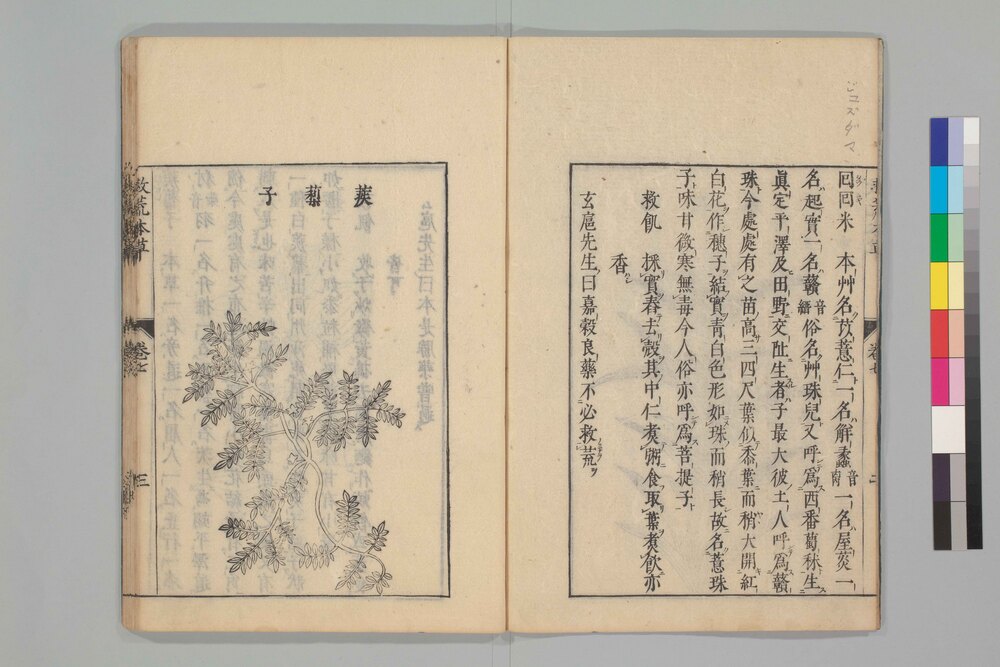 ジュズダマ
回回米 本艸名苡薏仁一名解蠡音禮一名屋菼一
名起實一名贛音縉俗名艸珠兒又呼爲西番蜀秫生
眞定平澤及田野交趾生者子最大彼土人呼爲贛
珠今處處有之苗高三四尺葉似黍葉而稍大開紅
白花作穗子結實青白色形如珠而稍長故名薏珠
子味甘微寒無毒今人俗亦呼爲菩提子
救飢 採實舂去殻其中仁煮粥食取葉煮飲亦
香
玄扈先生曰嘉穀良藥不必救荒
卷七
二
蒺藜子
救荒本草
卷七
三